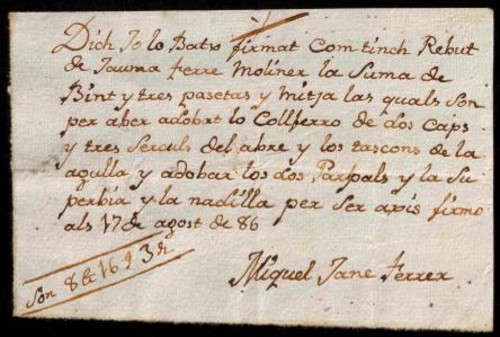 Dich Jo lo Batx firmat Com tinch Rebut
de Jauma ferre Moliner la Suma de
Bint y tres pasetas y mitja las quals son
per aber adobat lo Collferro de dos caps
y tres Serculs del abre y los tascons de la
agulla y adobar los dos Parpals y la Su
perbia y la nadilla per Ser axis firmo
als 17 de agost de 86
Miquel Jane ferrer
Son 8